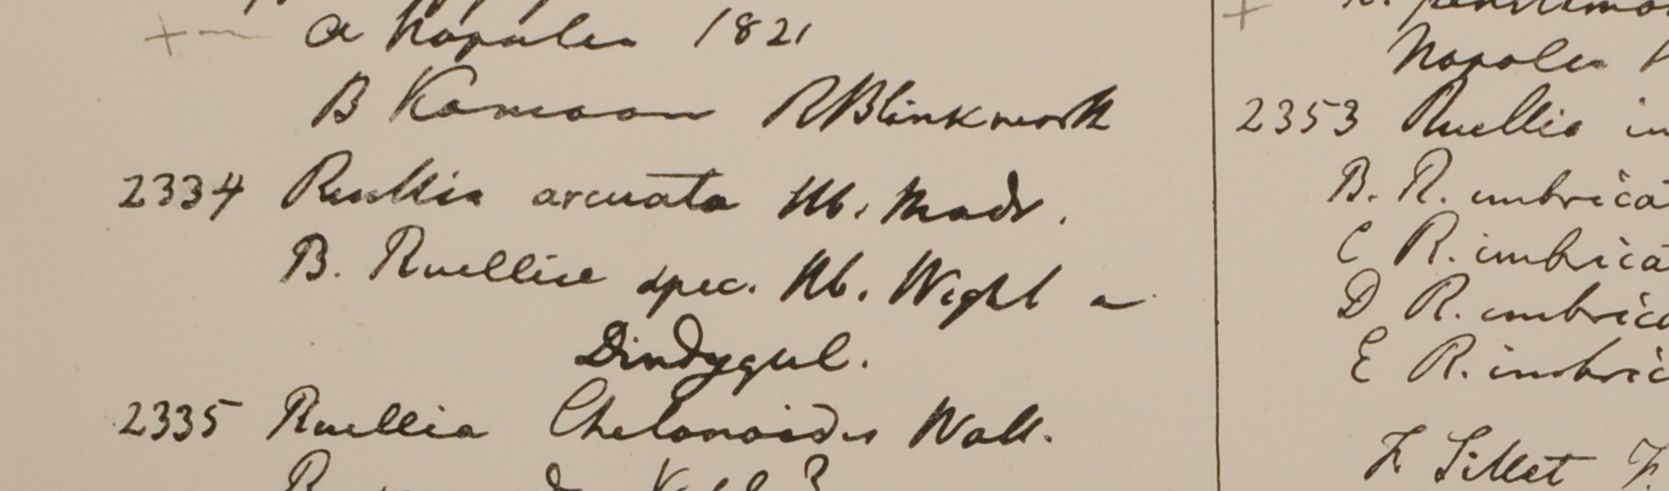 a Napalea 1821
B Kamaon RBlinkworth
2334 Ruellia arcuata Hb. Madr.
B. Ruellia spec. Hb. Wight a
Dindygul.
2335 Ruellia Chelonoides Wall.
Napalea
2353 Ruellia im
B. R. imbricat
C R. imbricat
D R. imbrica
E R. imbric
F. Sillet F.